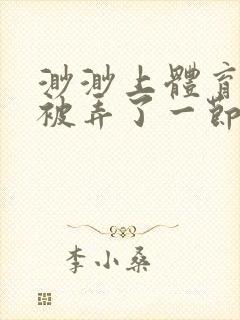 渺渺上體育
被弄了一節
李小桑